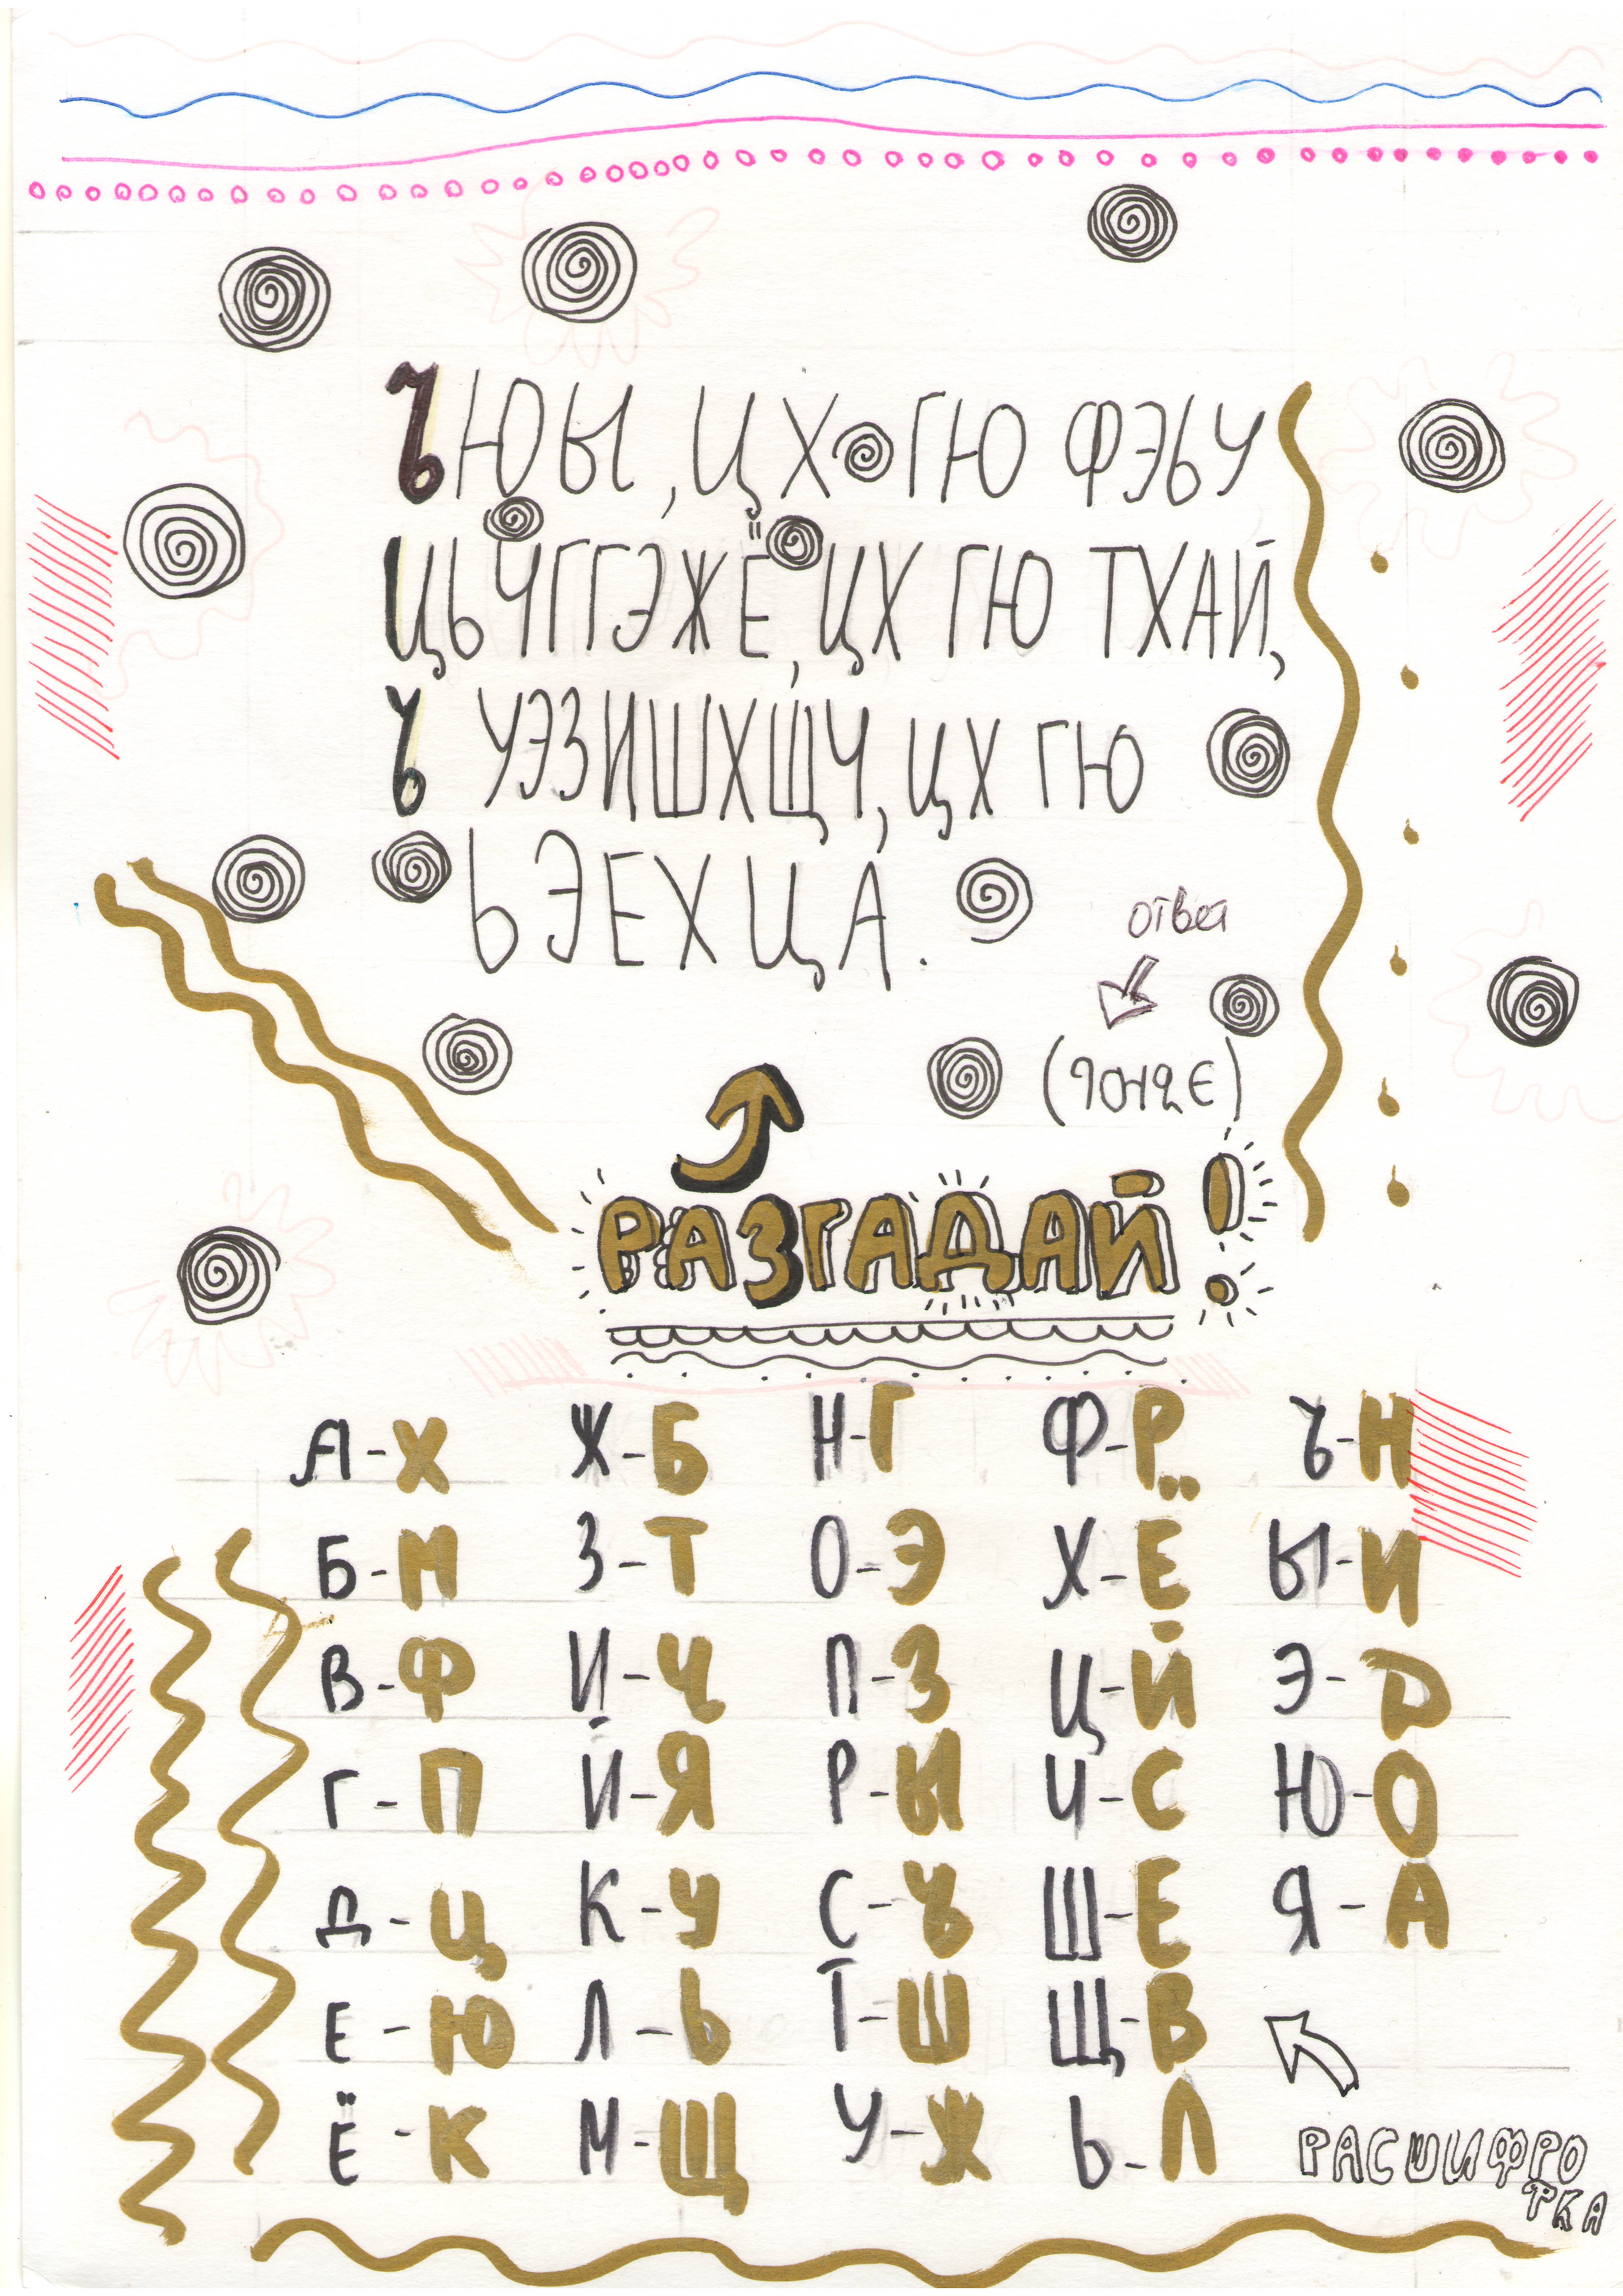 ЪЮЫ, ЦХ ГЮ ФЭЬУ
ЦЬЧГГЭЖЁ, ЦХ ГЮ ТХАЙ,
Ъ УЭЗИШХЩЧ, ЦХ ГЮ
ЬЭЕХЦА.
ответ
РАЗГАДАЙ!
А-Х Ж-Б Н-Г Ф-Р Ъ-Н
Б-М З-Т О-Э Х-Ё Ы-И
В-Ф И-Ч П-З Ц-Й Э-D
Г-П Й-Я Р-Ы Ч-С Ю-О
Д-Ц К-У С-Ъ Ш-Е Я-А
Е-Ю Л-Ь Т-Ш Щ-В
Ё-К М-Щ У-Ж Ь-Л
РАСШИФРО
ТКА